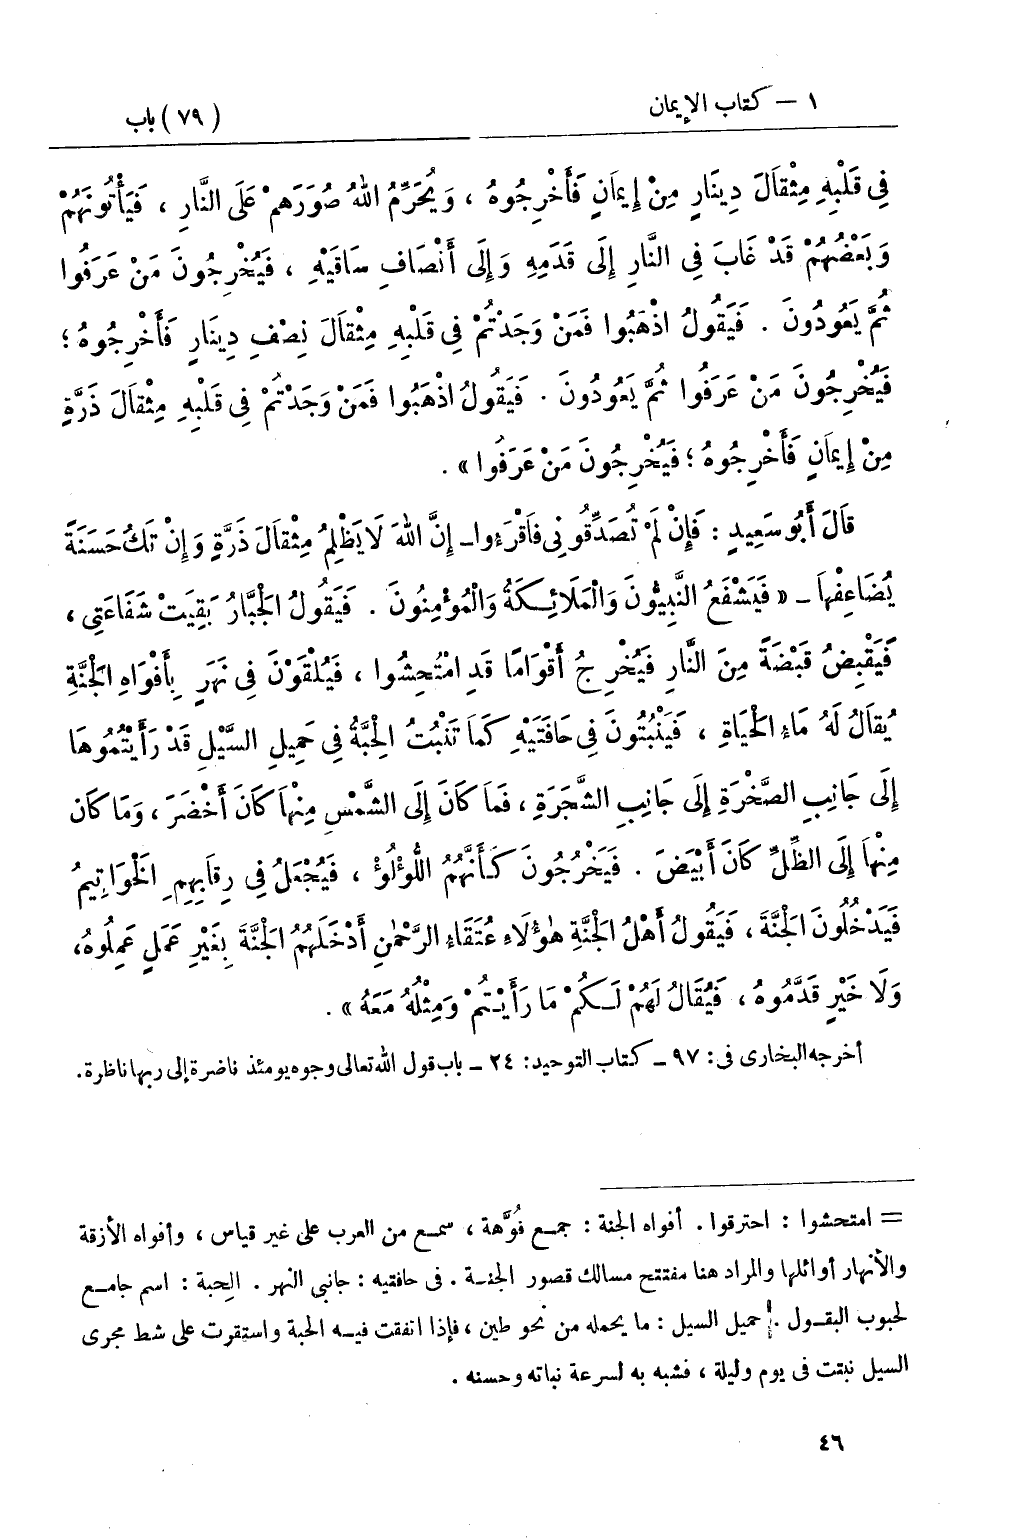 ١ — كتاب الإيمان
(٧٩) باب
فِى قَلْبِهِ مِثْقَالَ دِينَارٍ مِنْ إِيمَانٍ فَأَخْرِجُوهُ ، وَيُحَرِّمُ اللهُ صُوَرَهِمْ عَلَى النَّارِ ، فَيَأْتُونَهُمْ
وَبَعْضُهُمْ قَدْ غَابَ فِى النَّارِ إِلَى قَدَمِهِ وَإِلَى أَنْصَافِ سَاقَيْهِ ، فَيُخْرِجُونَ مَنْ عَرَفُوا
ثُمَّ يَعُودُونَ . فَيَقُولُ اذْهَبُوا فَمَنْ وَجَدْتُمْ فِى قَلْبِهِ مِثْقَالَ نِصْفِ دِينَارٍ فَأَخْرِجُوهُ ؛
فَيُخْرِجُونَ مَنْ عَرَفُوا ثُمَّ يَعُودُونَ . فَيَقُولُ اذْهَبُوا فَمَنْ وَجَدْتُمْ فِى قَلْبِهِ مِثْقَالَ ذَرَّةٍ
مِنْ إِيمَانٍ فَأَخْرِجُوهُ ؛ فَيُخْرِجُونَ مَنْ عَرَفُوا » .
قَالَ أَبُو سَعِيدٍ : فَإِنْ لَمْ تُصَدِّقُونِى فَاقْرَءُوا ـ إِنَّ اللهَ لَا يَظْلِمُ مِثْقَالَ ذَرَّةٍ وَإِنْ تَكُ حَسَنَةً
يُضَاعِفْهَا ـ « فَيَشْفَعُ النَّبِيُّونَ وَالْمَلَائِكَةُ وَالْمُؤْمِنُونَ . فَيَقُولُ الْجَبَّارُ بَقِيَتْ شَفَاعَتِى ،
فَيَقْبِضُ قَبْضَةً مِنَ النَّارِ فَيُخْرِجُ أَقْوَامًا قَدِ امْتُحِشُوا ، فَيُلْقَوْنَ فِى نَهَرٍ بِأَفْوَاهِ الْجَنَّةِ
يُقَالُ لَهُ مَاءُ الْحَيَاةِ ، فَيَنْبُتُونَ فِى حَافَتَيْهِ كَمَا تَنْبُتُ الْحِبَّةُ فِى حَمِيلِ السَّيْلِ قَدْ رَأَيْتُمُوهَا
إِلَى جَانِبِ الصَّخْرَةِ إِلَى جَانِبِ الشَّجَرَةِ ، فَمَا كَانَ إِلَى الشَّمْسِ مِنْهَا كَانَ أَخْضَرَ ، وَمَا كَانَ
مِنْهَا إِلَى الظِّلِّ كَانَ أَبْيَضَ . فَيَخْرُجُونَ كَأَنَّهُمُ اللُّؤْلُؤُ ، فَيُجْعَلُ فِى رِقَابِهِمِ الْخَوَاتِيمُ
فَيَدْخُلُونَ الْجَنَّةَ ، فَيَقُولُ أَهْلُ الْجَنَّةِ هٰؤُلَاءِ عُتَقَاءُ الرَّحْمٰنِ أَدْخَلَهُمُ الْجَنَّةَ بِغَيْرِ عَمَلٍ عَمِلُوهُ،
وَلَا خَيْرٍ قَدَّمُوهُ ، فَيُقَالُ لَهُمْ لَكُمْ مَا رَأَيْتُمْ وَمِثْلُهُ مَعَهُ » .
أخرجه البخارى فى : ٩٧ ـ كتاب التوحيد : ٢٤ ـ باب قول الله تعالى وجوه يومئذ ناضرة إلى ربها ناظرة .
= امتحشوا : احترقوا . أفواه الجنة : جمع فُوَّهة ، سمع من العرب على غير قياس ، وأفواه الأزقة
والأنهار أوائلها والمراد هنا مفتتح مسالك قصور الجنة . فى حافتيه : جانبي النهر . الحِبة : اسم جامع
لحبوب البقول . حميل السيل : ما يحمله من نحو طين ، فإذا اتفقت فيه الحبة واستقرت على شط مجرى
السيل نبتت فى يوم وليلة ، فشبه به لسرعة نباته وحسنه .
٤٦